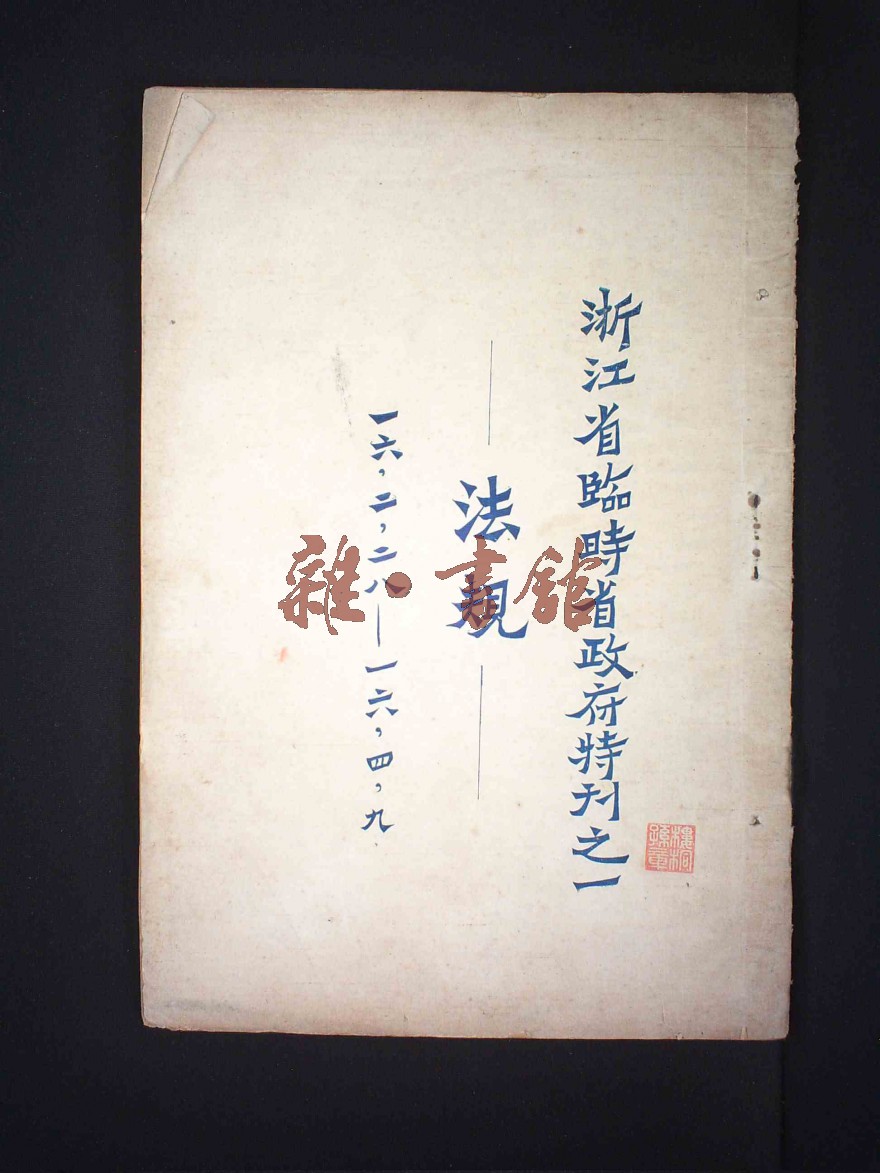 浙江省臨時省政府特刊之一
法規
一六，二，二八——一六，四，九
雜·書館